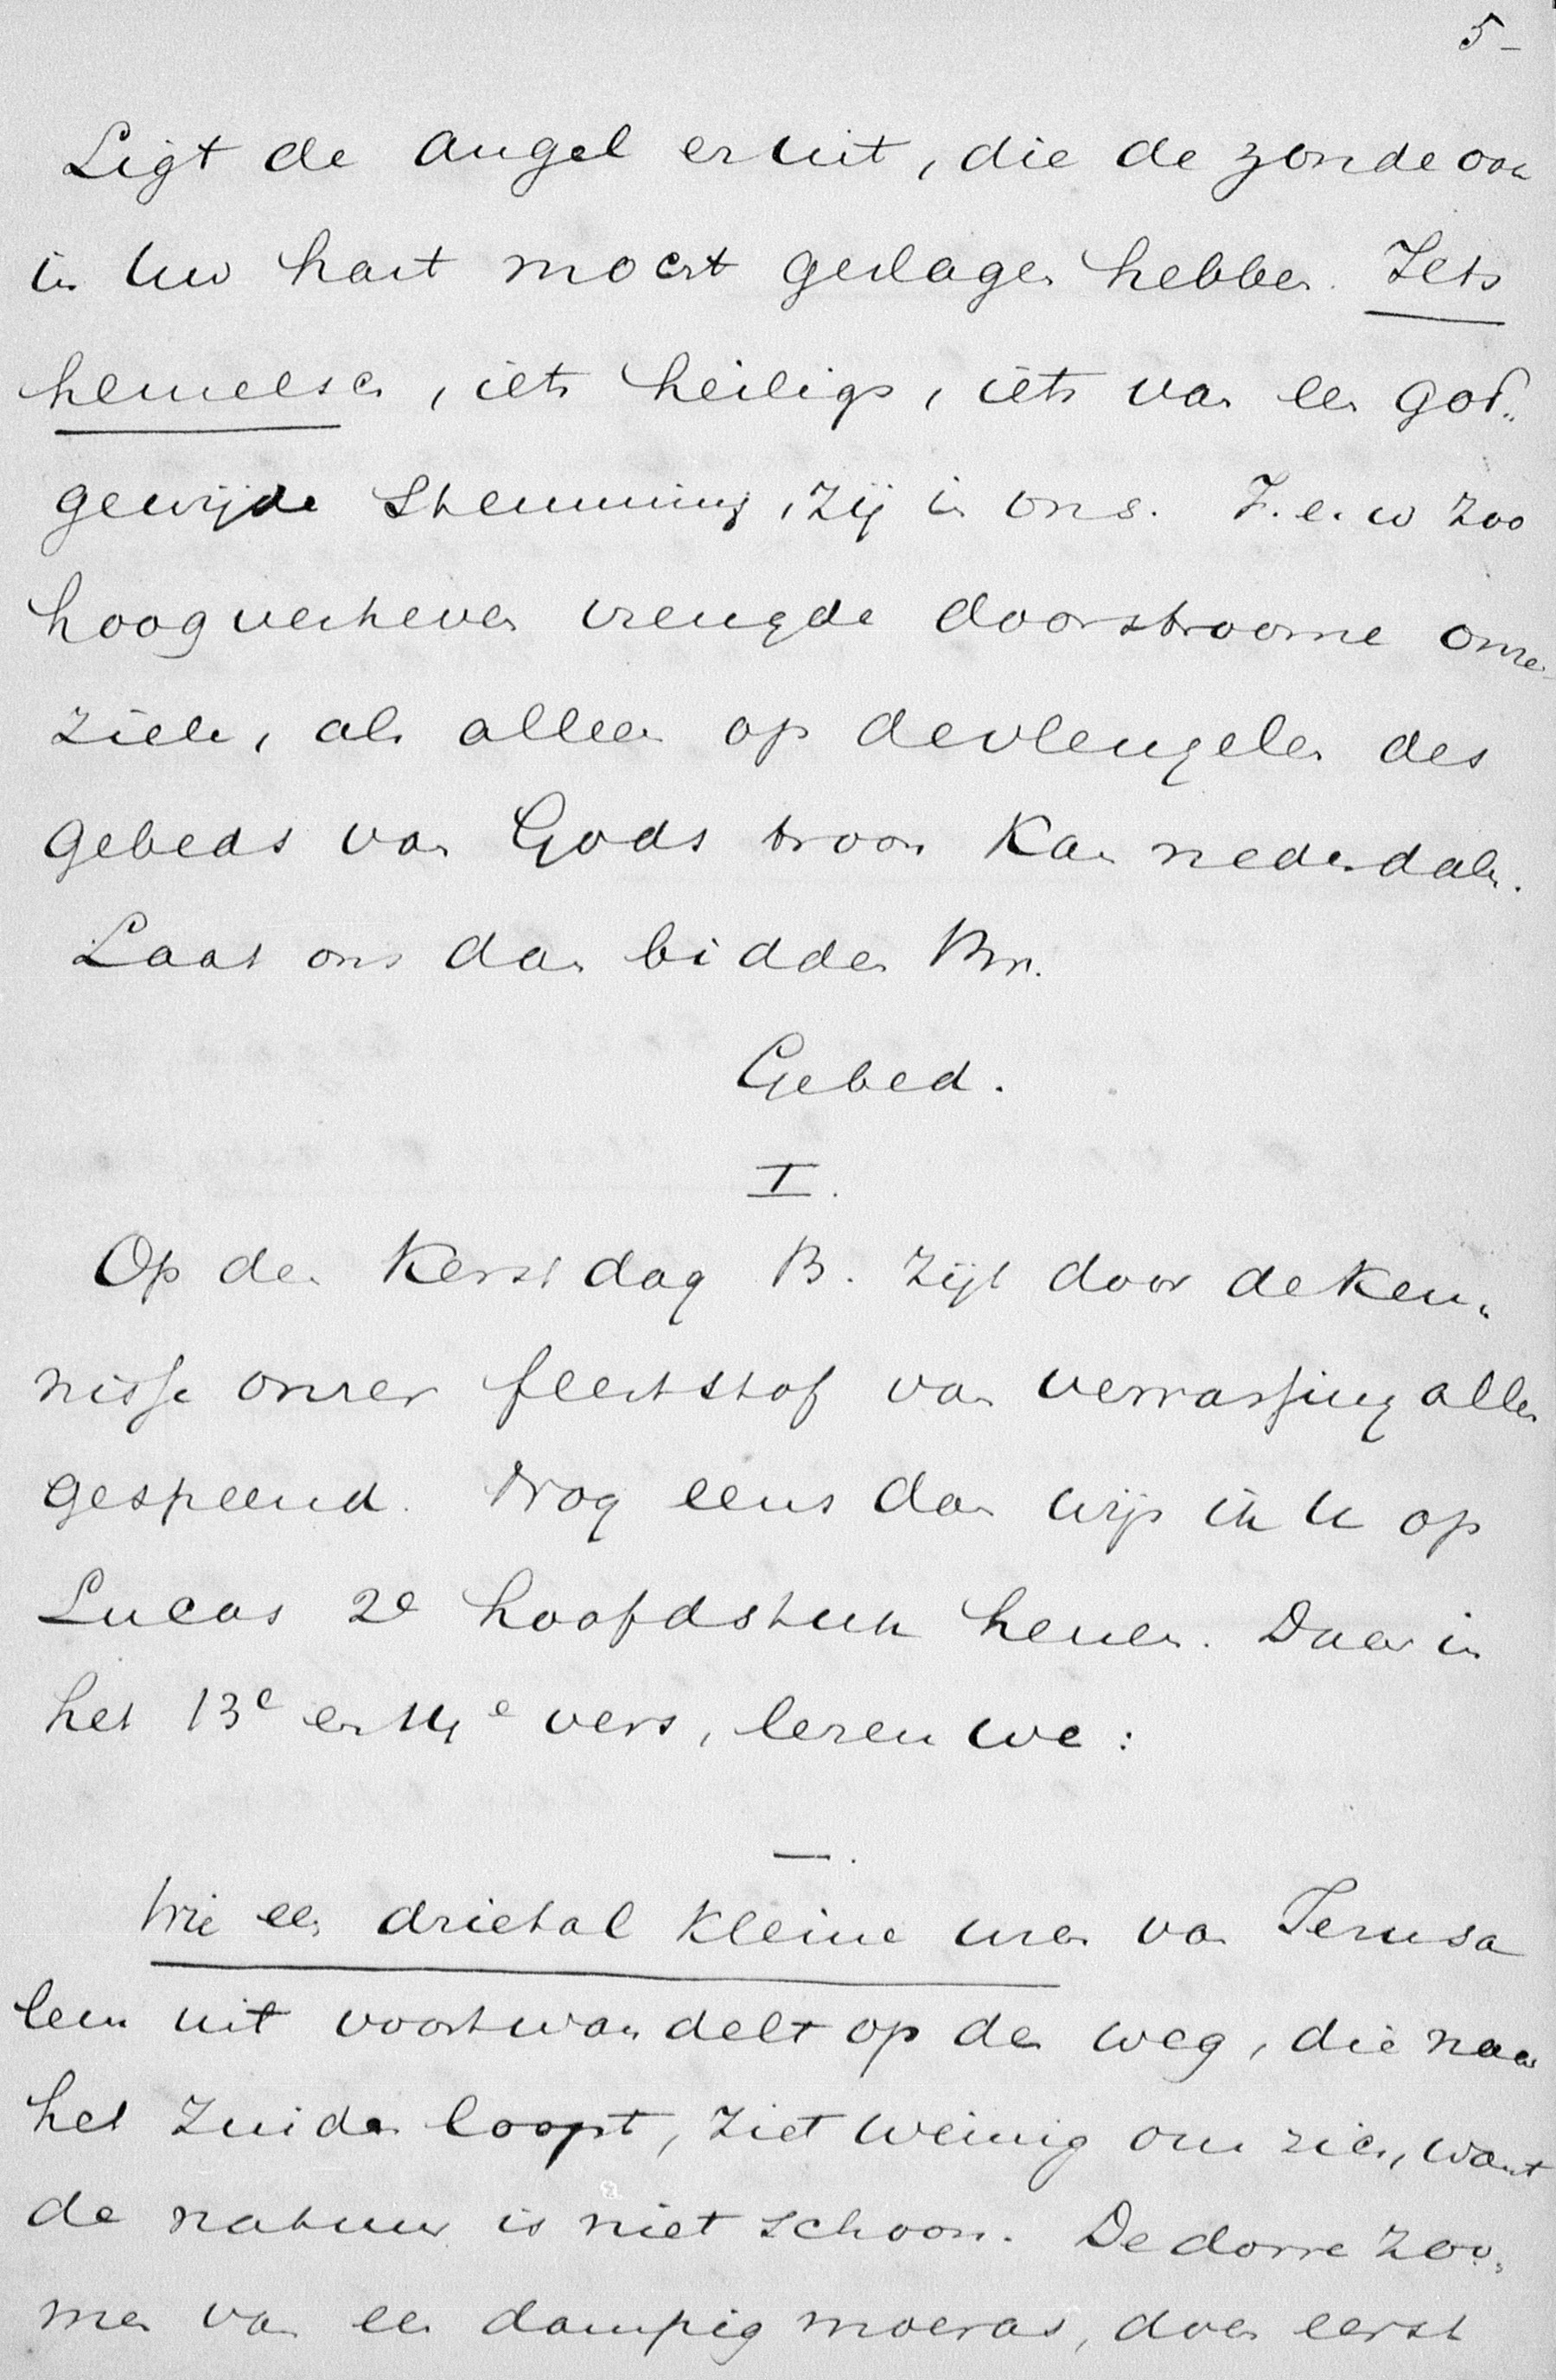 5-
Ligt de angel er uit, die de zonde ook
in Uw hart mocht geslagen hebben. Iets
hemelsch, iets heiligs, iets van een god„
gewijde stemming, zij in ons. I. e. w zoo
hoogverheven vreugde doorstroome onze
ziele, als alleen op de vleugelen des
gebeds van Gods troon kan nederdalen.
Laat ons dan bidden Br.
Gebed.
I.
Op den Kerstdag B. zijt door de ken„
nisse onzer feeststof van verrassing allen
gespeend. Nog eens dan wijs ik U op
Lucas 2e hoofdstuk henen. Daar in
het 13e en 14e vers, lezen we:
—.
Wie een drietal kleine uren van Jerusa
lem uit voortwandelt op den weg, die naar
het zuiden loopt, ziet weinig om zich, want
de natuur is niet schoon. De dorre zoo„
men van een dampig moeras, doen eerst